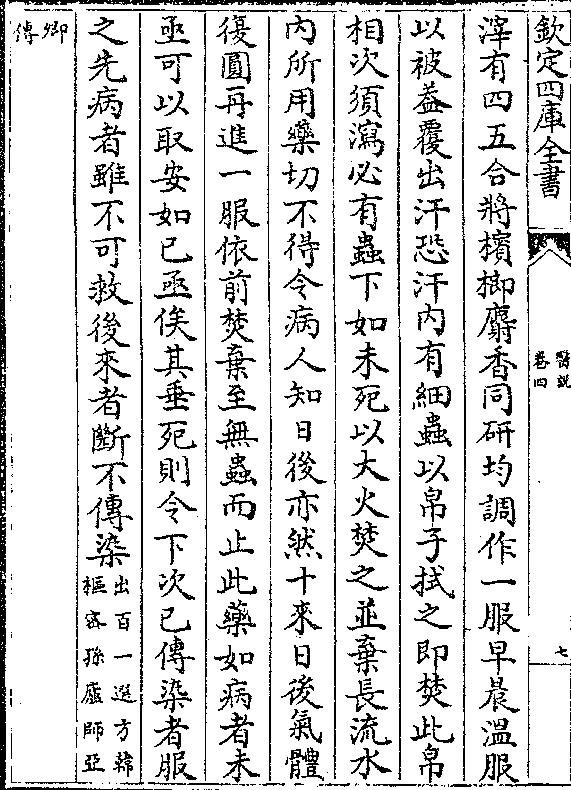 欽定四庫全書
醫説
卷四
七
滓有四五合將檳榔麝香同研均調作一服早晨溫服
以被葢覆出汗恐汗内有細蟲以帛子拭之即焚此帛
相次須瀉必有蟲下如未死以大火焚之並棄長流水
内所用藥切不得令病人知日後亦然十來日後氣體
復圓再進一服依前焚棄至無蟲而止此藥如病者未
亟可以取安如已亟俟其垂死則令下次已傳染者服
之先病者雖不可救後來者斷不傳染出百一選方韓
樞密孫廬師亞
卿
傳